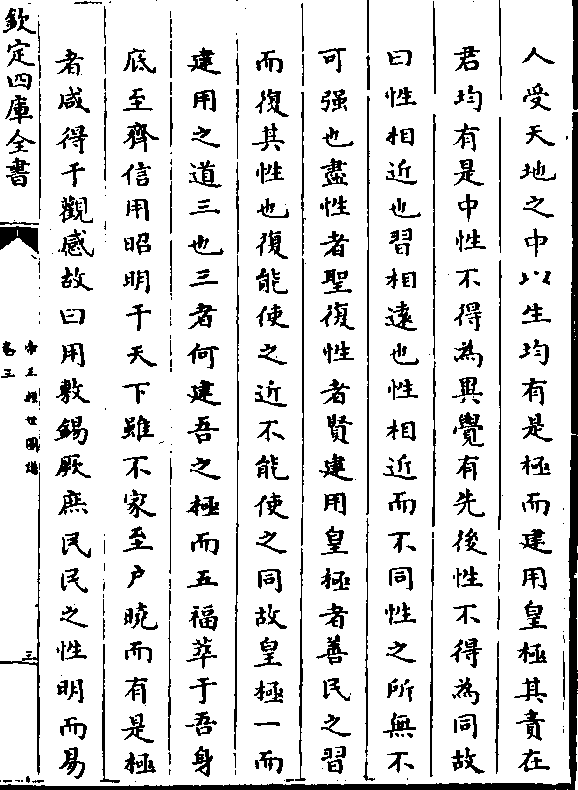 人受天地之中以生均有是極而建用皇極其責在
君均有是中性不得為異覺有先後性不得為同故
曰性相近也習相遠也性相近而不同性之所無不
可强也盡性者聖復性者賢建用皇極者善民之習
而復其性也復能使之近不能使之同故皇極一而
建用之道三也三者何建吾之極而五福萃于吾身
底至齊信用昭明于天下雖不家至户曉而有是極
者咸得于觀感故曰用敷錫厥庶民民之性明而易
欽定四庫全書
帝王經世圖譜
卷三
三